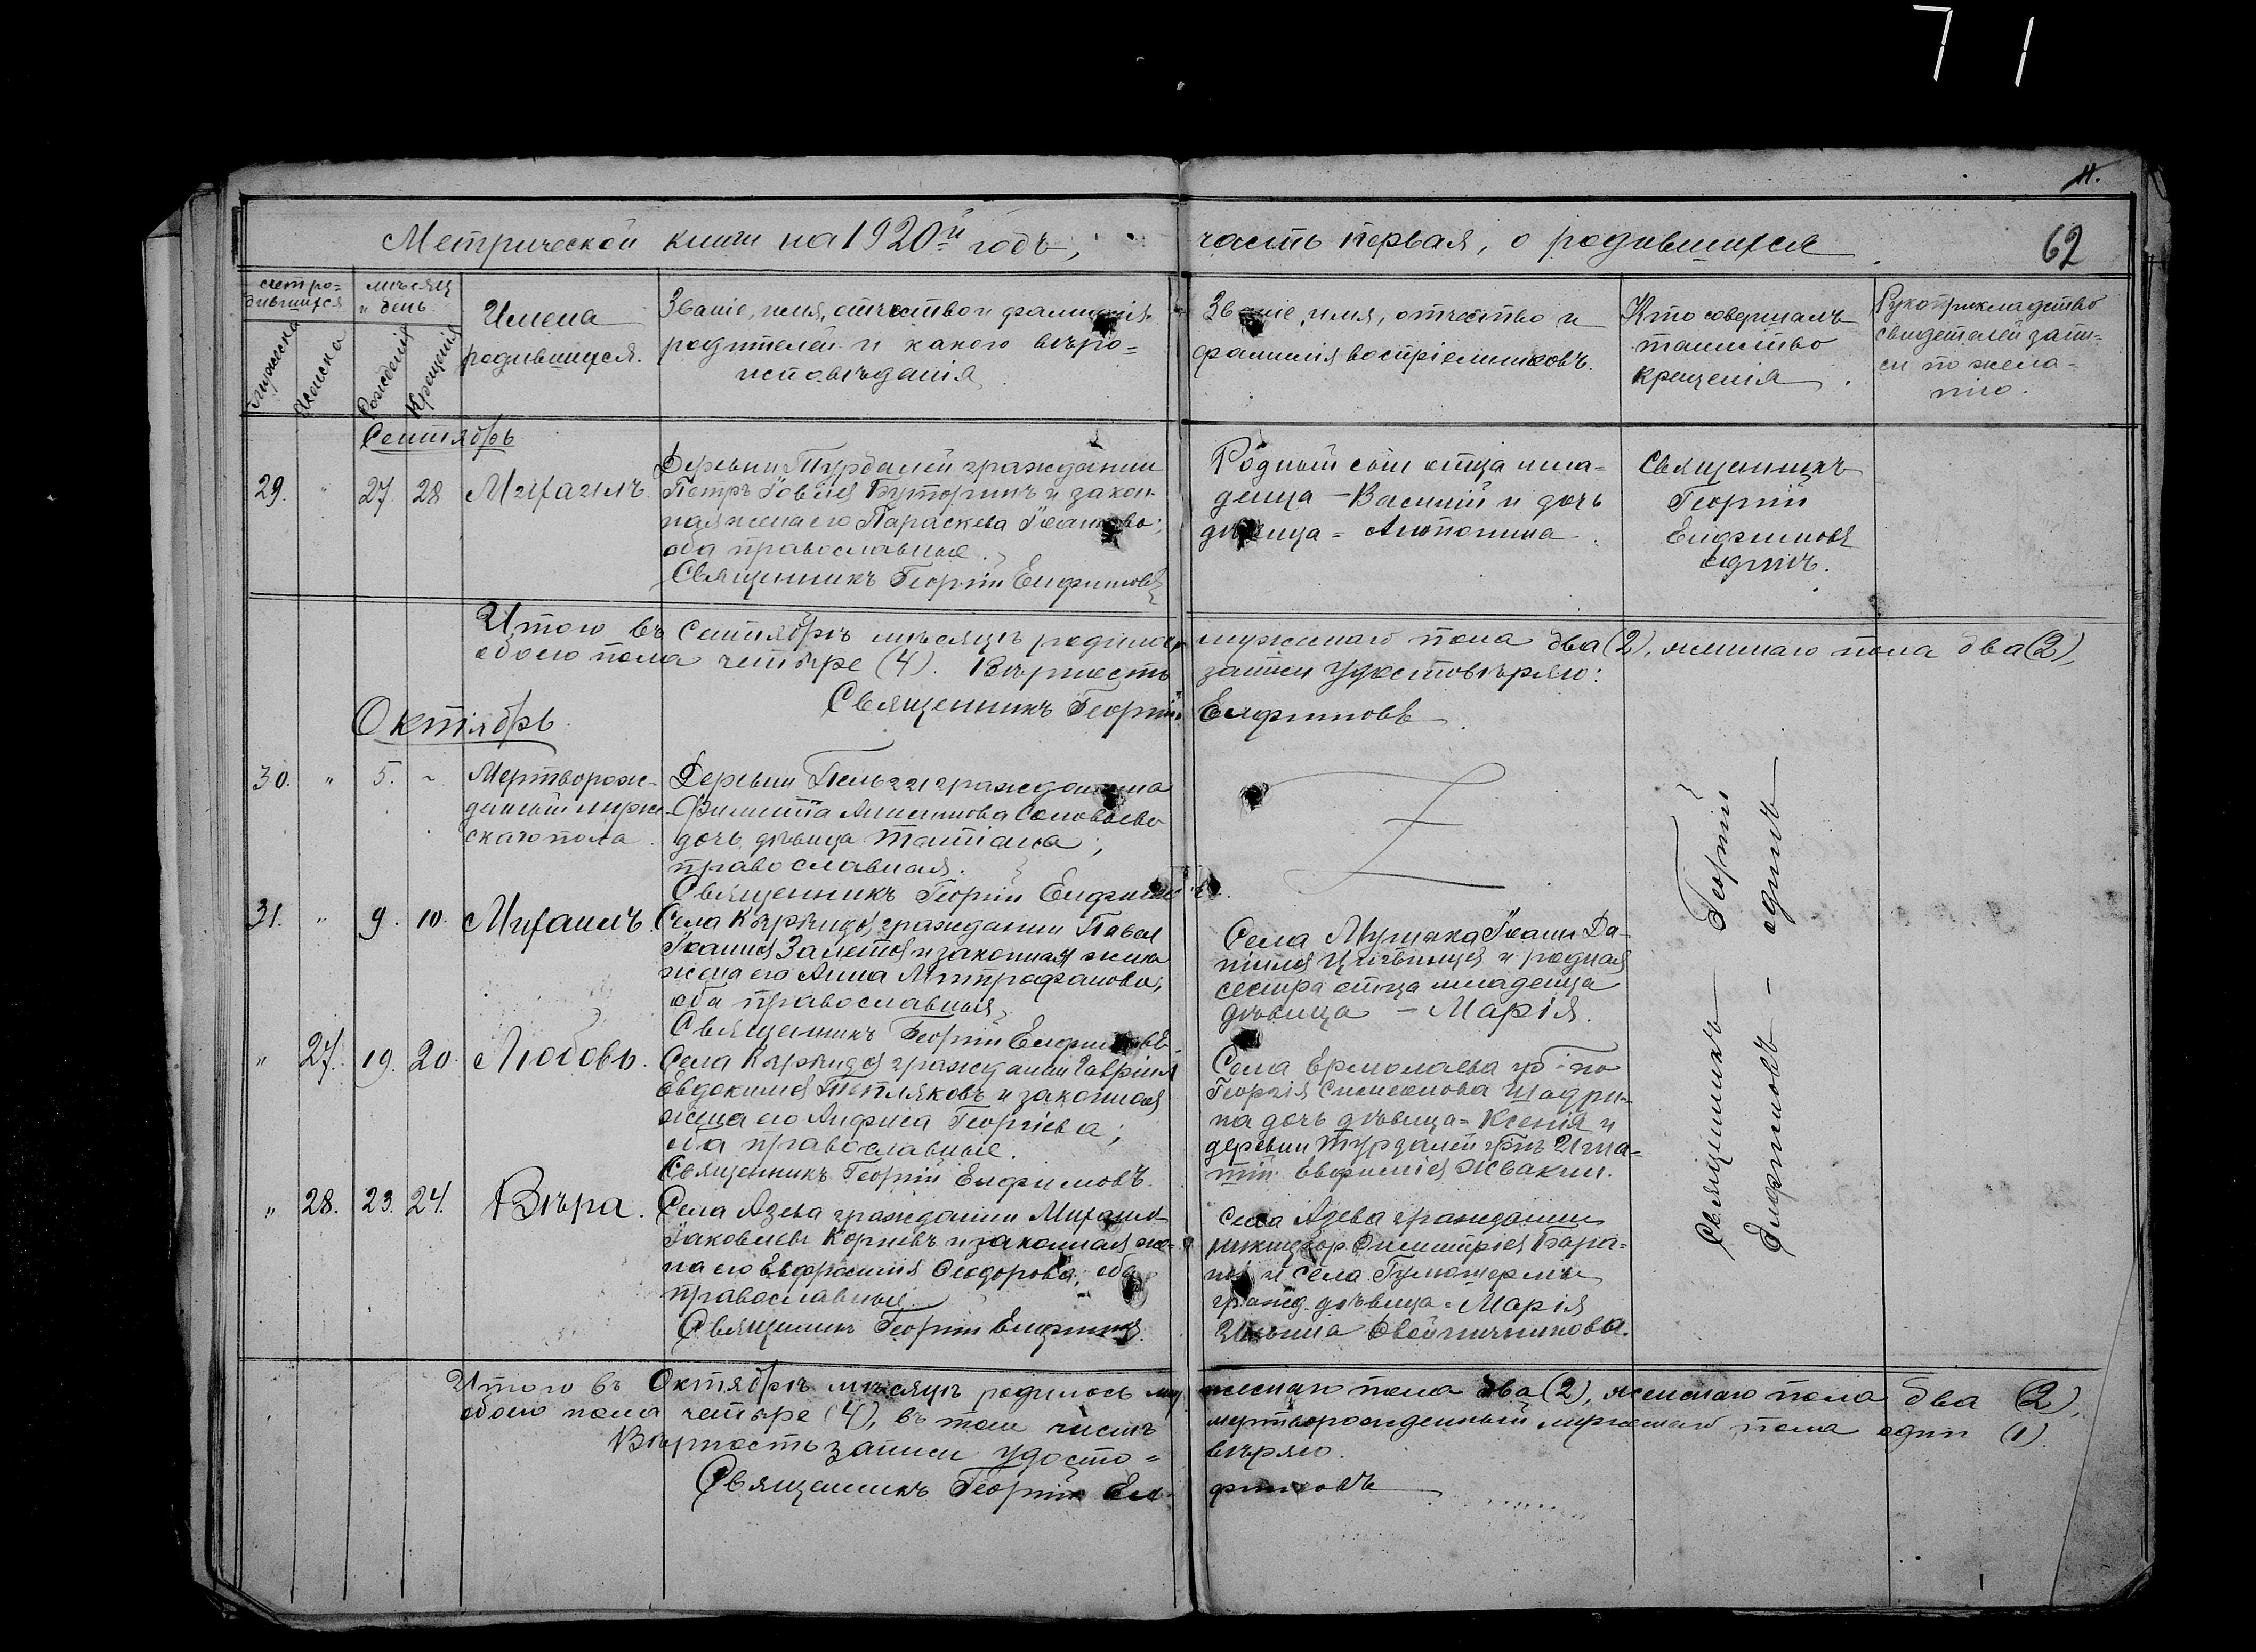 7 1
11.
Метрической книги на 1920й годъ, часть первая, о родившихся
62
счетъ ро=
дившихся
мѣсяц
и день
мужеска
женска
Рожденія
Крещенія
Имена
родившихся.
Званіе, имя, отчество и фамилія
родителей и какого вѣро=
исповѣданія
Званіе, имя, отчество и
фамилія воспріемниковъ.
Кто совершалъ
таинство
крещенія
Рукоприкладство
свидетелей запи=
си по жела=
нію.
Сентябрь
29. " 27. 28 Михаилъ
Деревни Турбалей гражданин
Петръ Іовлев Буторинъ и закон.
ная жена его Параскева Іоанова;
оба православные.
Священникъ Георгій Елифимовъ
Родный сын отца мла=
денца - Василий и дочь
дѣвица = Антонина
Священникъ
Георгій
Елифимовъ
одинъ.
Итого въ Сентябрѣ мѣсяцѣ родилось мужскаго пола два (2), женскаго пола два (2),
обоего пола четыре (4). Вѣрность записи удостовѣряю:
Священникъ Георгій Елифимовъ
Октябрь
30. " 5. ~ Мертворож-
денный муже
скаго пола
Деревни гражданина
Филиппа Соловьева
дочь дѣвица Татіана;
православная.
Священникъ Георгій
31. " 9. 10. Михаилъ
Села гражданин Павел
Іоаннов и законная жена
жена его Анна Митрофанова,
оба православныя,
Священникъ Георгій Елифимовъ
Села Іоанн Да-
нилов и родная
сестра отца младенца
дѣвица - Марія.
" 27. 19. 20. Любовь.
Села гражданин Гавріил
Евдокимов Тепляковъ и законная
жена его Анфиса Георгіева;
оба православные.
Священникъ Георгій Елифимовъ.
Села Ермолаева
Георгія Симеонова Шадри-
на дочь дѣвица = Ксенія и
деревни Турзалей Игна=
тій Евфиміев Жвакин.
" 28. 23. 24. Вѣра.
Села Азева гражданин Михаил
Іаковлевъ Корневъ и законная же-
на его Евфросинія Ѳеодорова, оба
православные.
Священникъ Георгій
Села Азева гражданин
Никифор Димитріев Бара=
нов и села
гражд. дѣвица = Марія
Ильина
Священникъ - Георгій
Елифимовъ - одинъ
Итого въ Октябрѣ мѣсяцѣ родилось мужескаго пола два (2), женскаго пола два (2),
обоего пола четыре (4), въ том числѣ мертворожденный мужескаго пола один (1)
Вѣрность записи удосто= вѣряю.
Священникъ Георгій Ели фимовъ